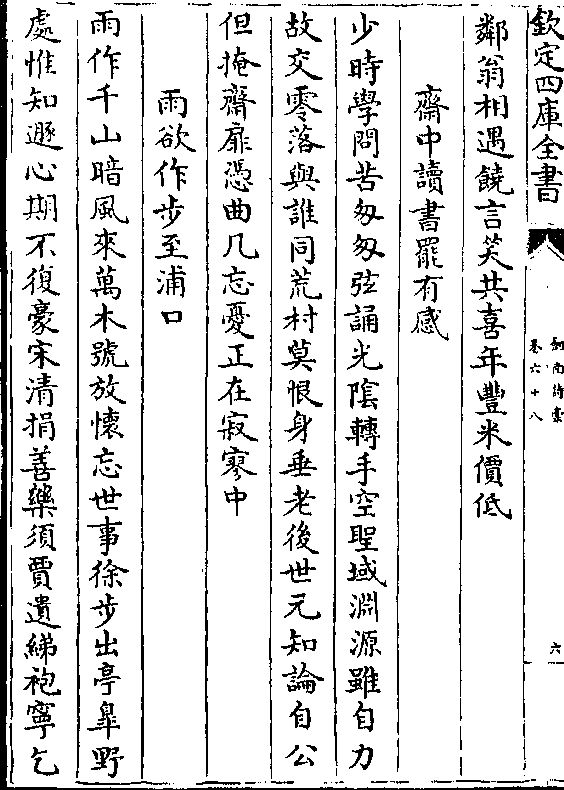 欽定四庫全書
劒南詩稾
卷六十八
六
鄰翁相遇饒言笑共喜年豐米價低
齋中讀書罷有感
少時學問苦匆匆弦誦光陰轉手空聖域淵源雖自力
故交零落與誰同荒村莫恨身垂老後世元知論自公
但掩齋扉憑曲几忘憂正在寂寥中
雨欲作步至浦口
雨作千山暗風來萬木號放懷忘世事徐步出亭臯野
處惟知遯心期不復豪宋清捐善藥須賈遺綈袍寧乞